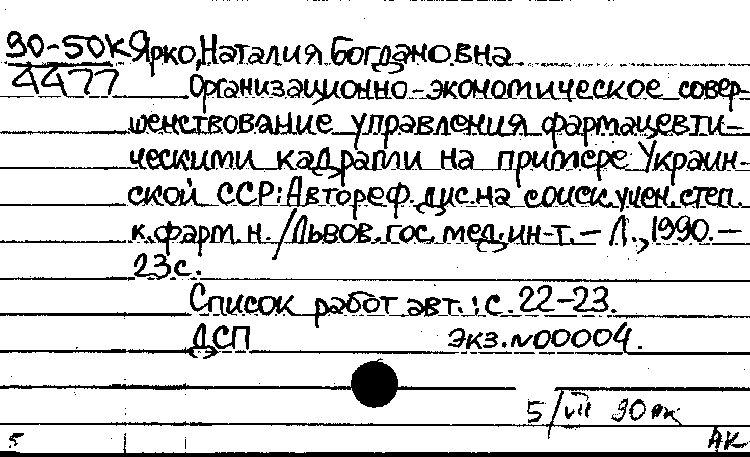 90-50к Ярко, Наталия Богдановна
4477 Организационно-экономическое совер-
шенствование управления фармацевти-
ческими кадрами на примере Украин-
ской ССР: Автореф. дис. на соиск. учен. степ.
к. фарм. н. / Львов. гос. мед. ин-т. – Л., 1990. –
23 с.
Список работ авт.: с. 22-23.
ДСП Экз. №00004.
5/VII 90
5 АК